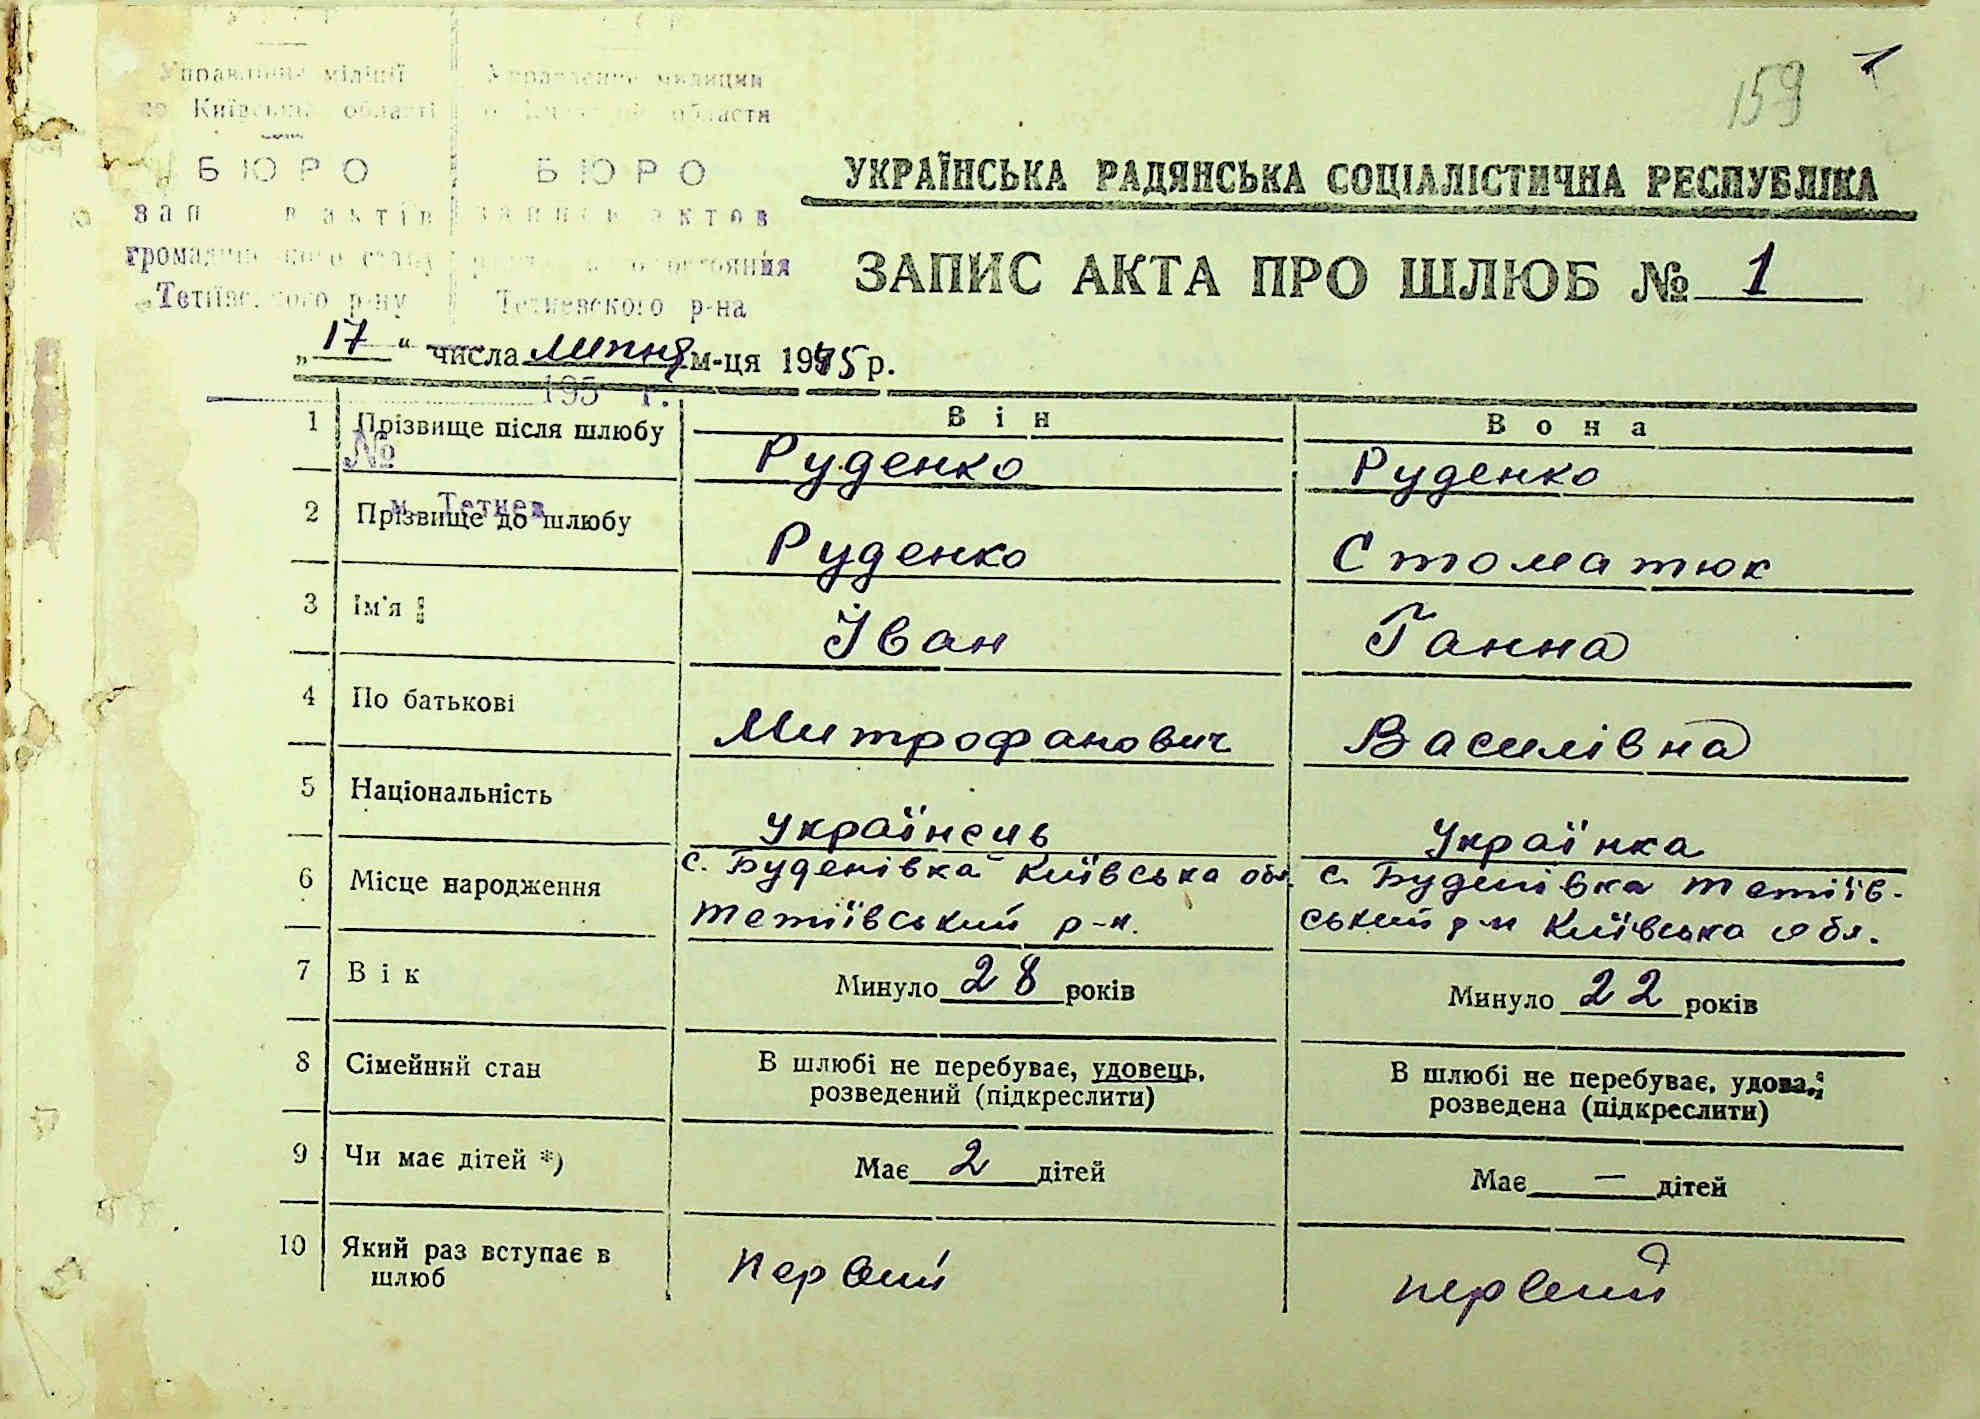 1
159
Управління міліції
по Київській області
БЮРО
запису актів
громадянського стану
Тетіївського р-ну
Управление милиции
области
БЮРО
записи актов
состояния
Тетиевского р-на
УКРАЇНСЬКА РАДЯНСЬКА СОЦІАЛІСТИЧНА РЕСПУБЛІКА
ЗАПИС АКТА ПРО ШЛЮБ № 1
„17“ числа липня м-ця 1945 р.
195 г.
Він Вона
1 Прізвище після шлюбу Руденко Руденко
№
м. Тетиев
2 Прізвище до шлюбу Руденко Стоматюк
3 Ім'я Іван Ганна
4 По батькові Митрофанович Василівна
5 Національність Українець Українка
6 Місце народження с. Буденівка Київська обл. Тетіївський р-н. с. Буденівка Тетіїв-
ський р-н Київська обл.
7 Вік Минуло 28 років Минуло 22 років
8 Сімейний стан В шлюбі не перебуває, удовець, В шлюбі не перебуває, удова,
розведений (підкреслити) розведена (підкреслити)
9 Чи має дітей *) Має 2 дітей Має — дітей
10 Який раз вступає в первий первий
шлюб